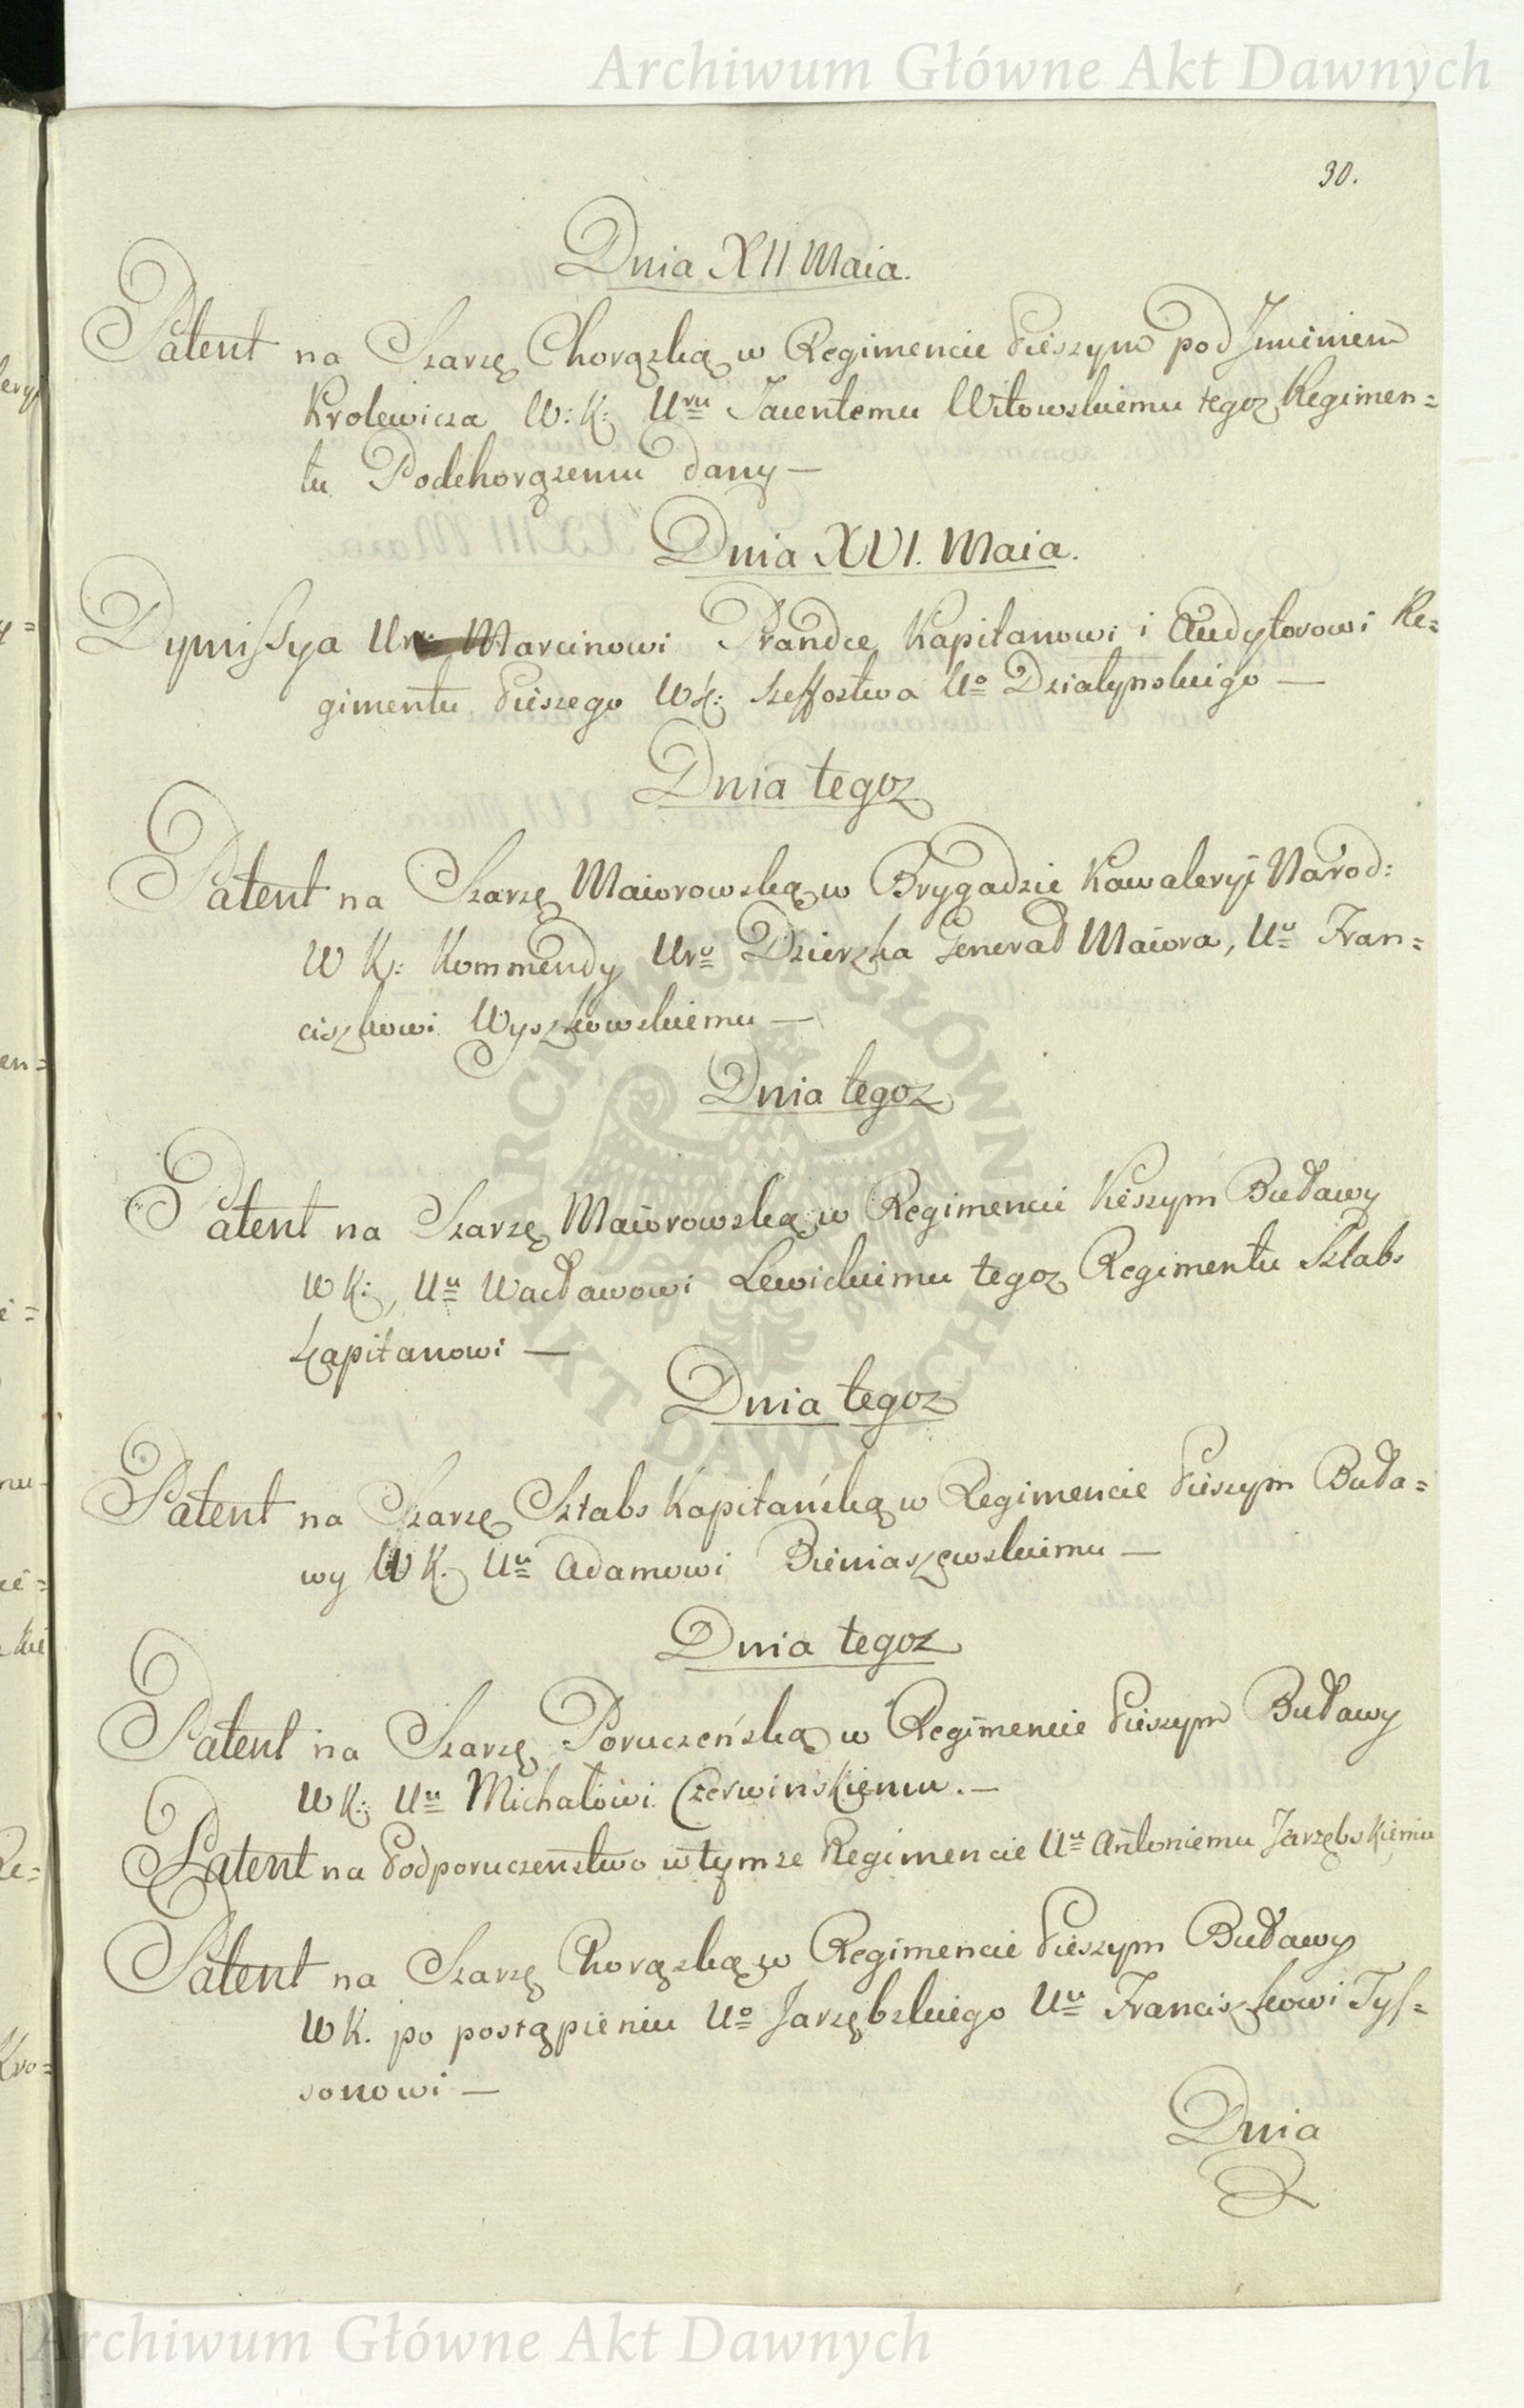 Archiwum Główne Akt Dawnych
30.
Dnia XII Maia.
Patent na Szarzę Chorązką w Regimencie Pieszym pod Jmieniem
Krolewicza W: K: U<sup>ru</sup> Jacentemu Witowskiemu tegoz Regimen=
tu Podchorązemu dany —
Dnia XVI. Maia.
Dymissya Ur: Marcinowi Prandce Kapitanowi i Audytorowi Re=
gimentu Pieszego WK: Szeffostwa U<sup>o</sup> Dzialynskiego —
Dnia tegoz
Patent na Szarzę Maiorowską w Brygadzie Kawaleryi Narod:
W K: Kommendy Ur<sup>o</sup> Dzierzka Generał Maiora, U<sup>u</sup> Fran=
ciszkowi Wyszkowskiemu —
Dnia tegoz
Patent na Szarzę Maiorowską w Regimencie Pieszym Buławy
W K:, U<sup>u</sup> Wacławowi Lewickiemu tegoz Regimentu Sztabs
Kapitanowi —
Dnia tegoz
Patent na Szarzę Sztabs Kapitańską w Regimencie Pieszym Buła=
wy W K. U<sup>u</sup> Adamowi Bieniaszewskiemu —
Dnia tegoz
Patent na Szarzę Poruczeńską w Regimencie Pieszym Buławy
W K: U<sup>u</sup> Michałowi Czerwinskiemu. —
Patent na Podporuczenstwo w tymze Regimencie U<sup>u</sup> Antoniemu Jarzębskiemu
Patent na Szarzę Chorązką w Regimencie Pieszym Buławy
W K. po postąpieniu U<sup>o</sup> Jarzębskiego U<sup>u</sup> Franciszkowi Tys=
sonowi —
Dnia
ARCHIWUM GŁÓWNE AKT DAWNYCH
Archiwum Główne Akt Dawnych